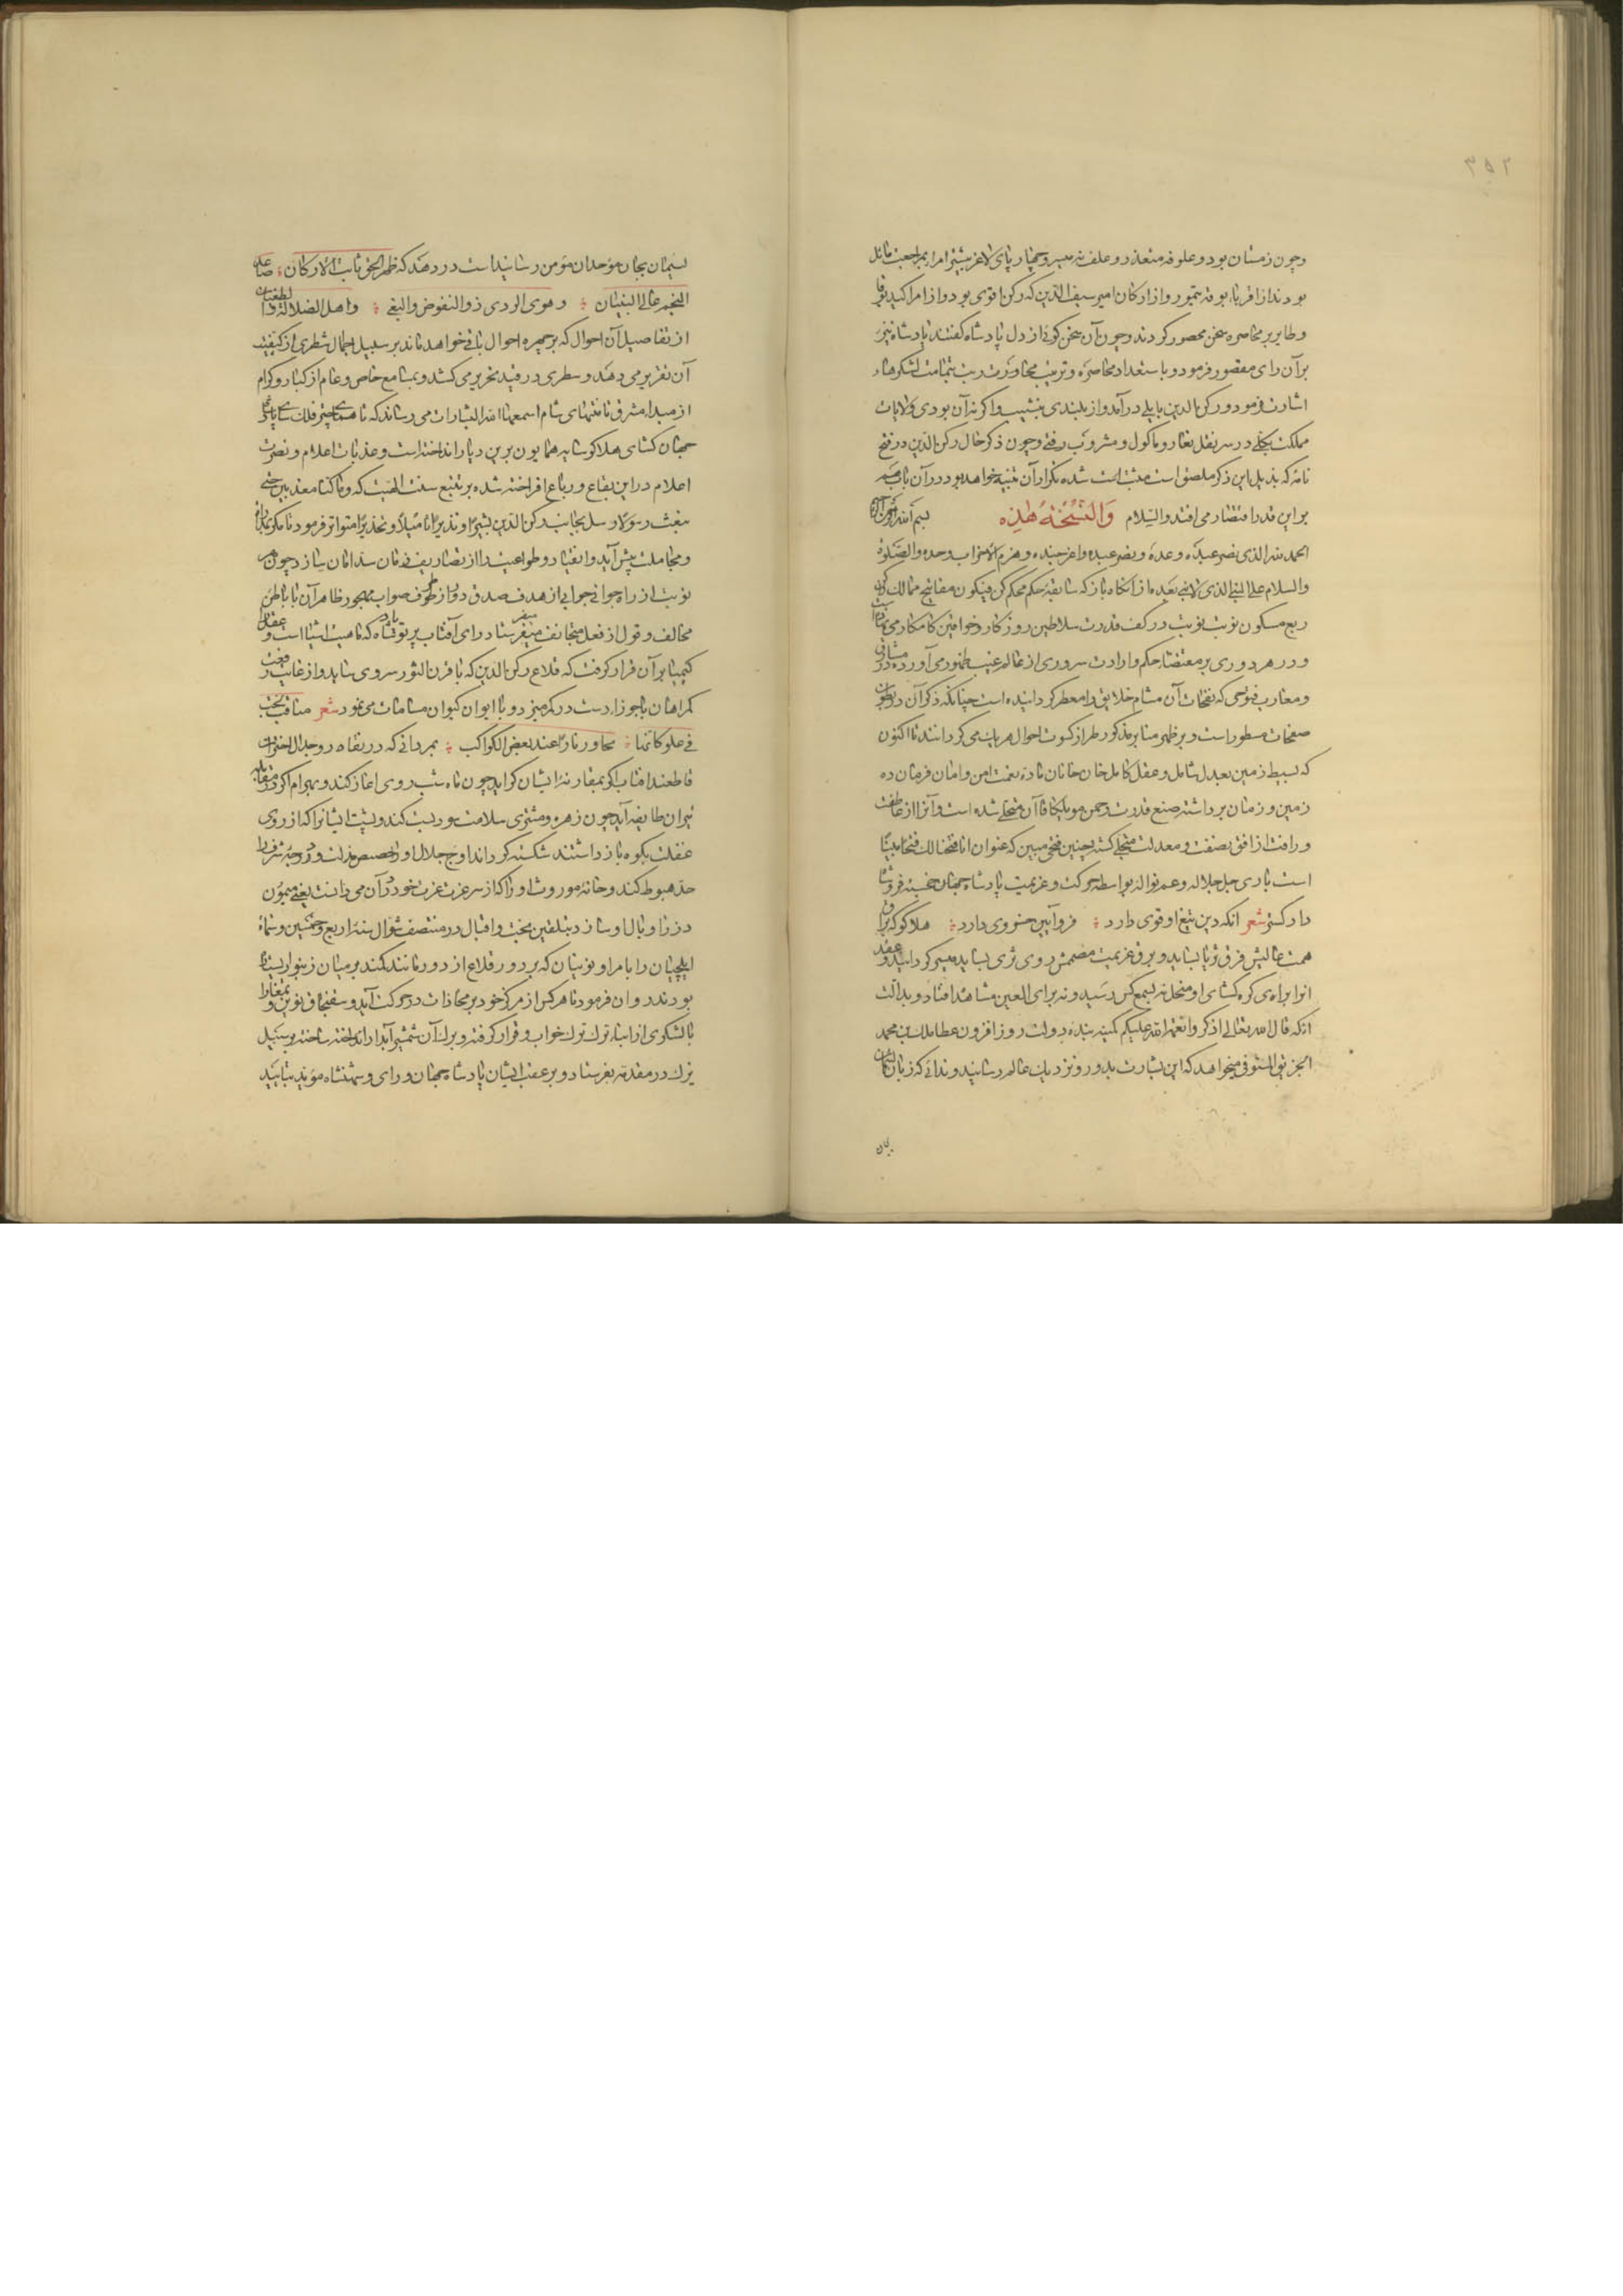 ۳۵۲
وچون زمستان بود و علوفه متعذر و علف نه میسر و چهارپای لاغر بیشتر امرا بمراجعت مائل
بودند از اقربا بوقه تیمور و از ارکان امیر سیف الدین که رکن اقوی بود و از امرا کیدبوقا
و طایر بر محاصره سخن محصور کردند و چون آن سخن کوئی از دل پادشاه گفتند پادشاه نیز
بر آن رای مقصور فرمود و باستعداد محاصره و ترتیب محاورت بتمامت لشکرها
اشارت فرمود و رکن الدین بایلی درآمد و از بلندی بنشیب و اکر نه آن بودی ولایات
مملکت بکلی در سر نقل تغار و ماکول و مشروب رفتی و چون ذکر حال رکن الدین در فتح
نامه که بذیل این ذکر ملصق است مثبت شده تکرار آن خواهد بود در آن باب هم
بر این قدر اقتصار می افتد والسلام والنسخة هذه
الحمد لله الذی نصر عبده وعده و نصر عبده واعز جنده و هزم الاحزاب وحده والصلوة
والسلام علی النبی الذی لا نبی بعده از آنکاه باز که سابقه حکم محکم کن فیکون مفاتیح ممالک
ربع مسکون نوبت بنوبت در کف قدرت سلاطین روزکار و خواقین کامکار می
و در هر دوری بر مقتضاء حکم و ارادت سروری از عالم غیب بظهور می آورده در مشارق
و مغارب فتوحی که نفحات آن مشام خلایق را معطر کردانیده است چنانکه ذکر آن در بطون
صفحات مسطور است و بر ظهر منابر مذکور طراز کسوت احوال هر یک می کردانند تا اکنون
که بسیط زمین بعدل شامل و عقل کامل خان خانان ماده نعمت امن و امان فرمان ده
زمین و زمان برداشته صنع قدرت رحمن مونککا قاآن متحلی شده است و آنرا از عاطفت
و رافت از افق نصفت و معدلت متجلی کشته چنین فتحی مبین که عنوان انا فتحنا لک فتحا مبینا
است باری جل جلاله و عم نواله بواسطه حرکت و عزیمت پادشاه جهان خجسته فر
دادکستر شعر انکه دین تیغ او قوی دارد فر و آیین خسروی دارد هلاکو که براق
همت عالیش فرق ثریا بساید و برق عزیمت مصممش روی ثری بساید میسر کردانید و عقد
انرا برای کره کشای او منحل نه بسمع کس رسید و نه برای العین مشاهد افتاد و بدالت
آنکه قال الله تعالی اذکروا نعمة الله علیکم کمینه بنده دولت روزافزون عطا ملک بن محمد
الجوینی المستوفی میخواهد که این بشارت بدور و نزدیک عالم رساند و ندائی که زبان
یمان
بجان موحدان مؤمن رسانیداست در دهد که ظهر الحق ثابت الارکان صاعد
النجم عالی البنیان و هوی الردی ذو النفوض والبغی واهل الضلالة والطغیان
از تفاصیل آن احوال که بر چهره احوال باقی خواهد ماند بر سبیل اجمال شطری از کیفیت
آن تقریر می دهد و سطری در قید تحریر می کشد و بمسامع خاص و عام از کبار و کرام
از مبداء مشرق تا منتهای شام اسمعها الله البشارات می رساند که تا همای چتر فلک سای پادشاه
جهان کشای هلاکو سایه همایون برین دیار انداخته است و عذبات اعلام و نصرت
اعلام در این بقاع و رباع افراخته شده بر تتبع سنت الهیت که وما کنا معذبین حتی
نبعث رسولا رسل بجانب رکن الدین بشیرا و نذیرا تامیلا و تحذیرا متواتر فرمود تا مکر
و مجاملت پیش آید و انقیاد و طواعیت را از تصاریف زمان سد امان سازد چون هر
نوبت از راه جوانی جوابی از هدف صدق دور و از طرف صواب مهجور ظاهر آن با باطن
مخالف و قول از فعل متجانف میفرستاد رای آفتاب پرتو پادشاه که ماهیت اشیا است و عقل را
کیمیا بر آن قرار کرفت که قلاع رکن الدین که با قرن الثور سروی ساید و از غایت رفعت
کمرهاش با جوزا دست در کمر میزد و با ایوان کیوان مسامات می نمود شعر مناقب
فی علو کانها تحاور نارا عند بعض الکواکب بمردانی که در نقاه روز جدال
قاطعند آفتاب اکر بمقارنه ایشان کراید چون ماه شب روی اغاز کند و بهرام اکر در مقابله
نیران طایفه آید چون زهره و مشتری سلامت موریث کند و پشت ایشانرا که از روی
غفلت بکوه باز داشتند شکسته کرداند اوج جلال او را بحضیض مذلت و ذروه شرف را
حد هبوط کند و خانه موروث او را که از سر عزت غرت خود در آن می دانست یعنی میمون
دز را وبال او سازد بتلقین بخت و اقبال در منتصف شوال سنه اربع و خمسین و ستمائه
ایلچیان را بامرا و نوینان که بر دور قلاع از دور مانند کمند بر میان زنبور ایستاده
بودند روان فرمود تا هر کس از مرکز خود بر محاذات در حرکت آید و سقنجاق نوین و تمغا را
با لشکری از اتباع ترک ترک خواب و قرار کرفته و برک آن شمشیر آبدار ساخته بر سبیل
یزک در مقدمه بفرستاد و بر عقب ایشان پادشاه جهان و رای و شهنشاه مؤید بتائید